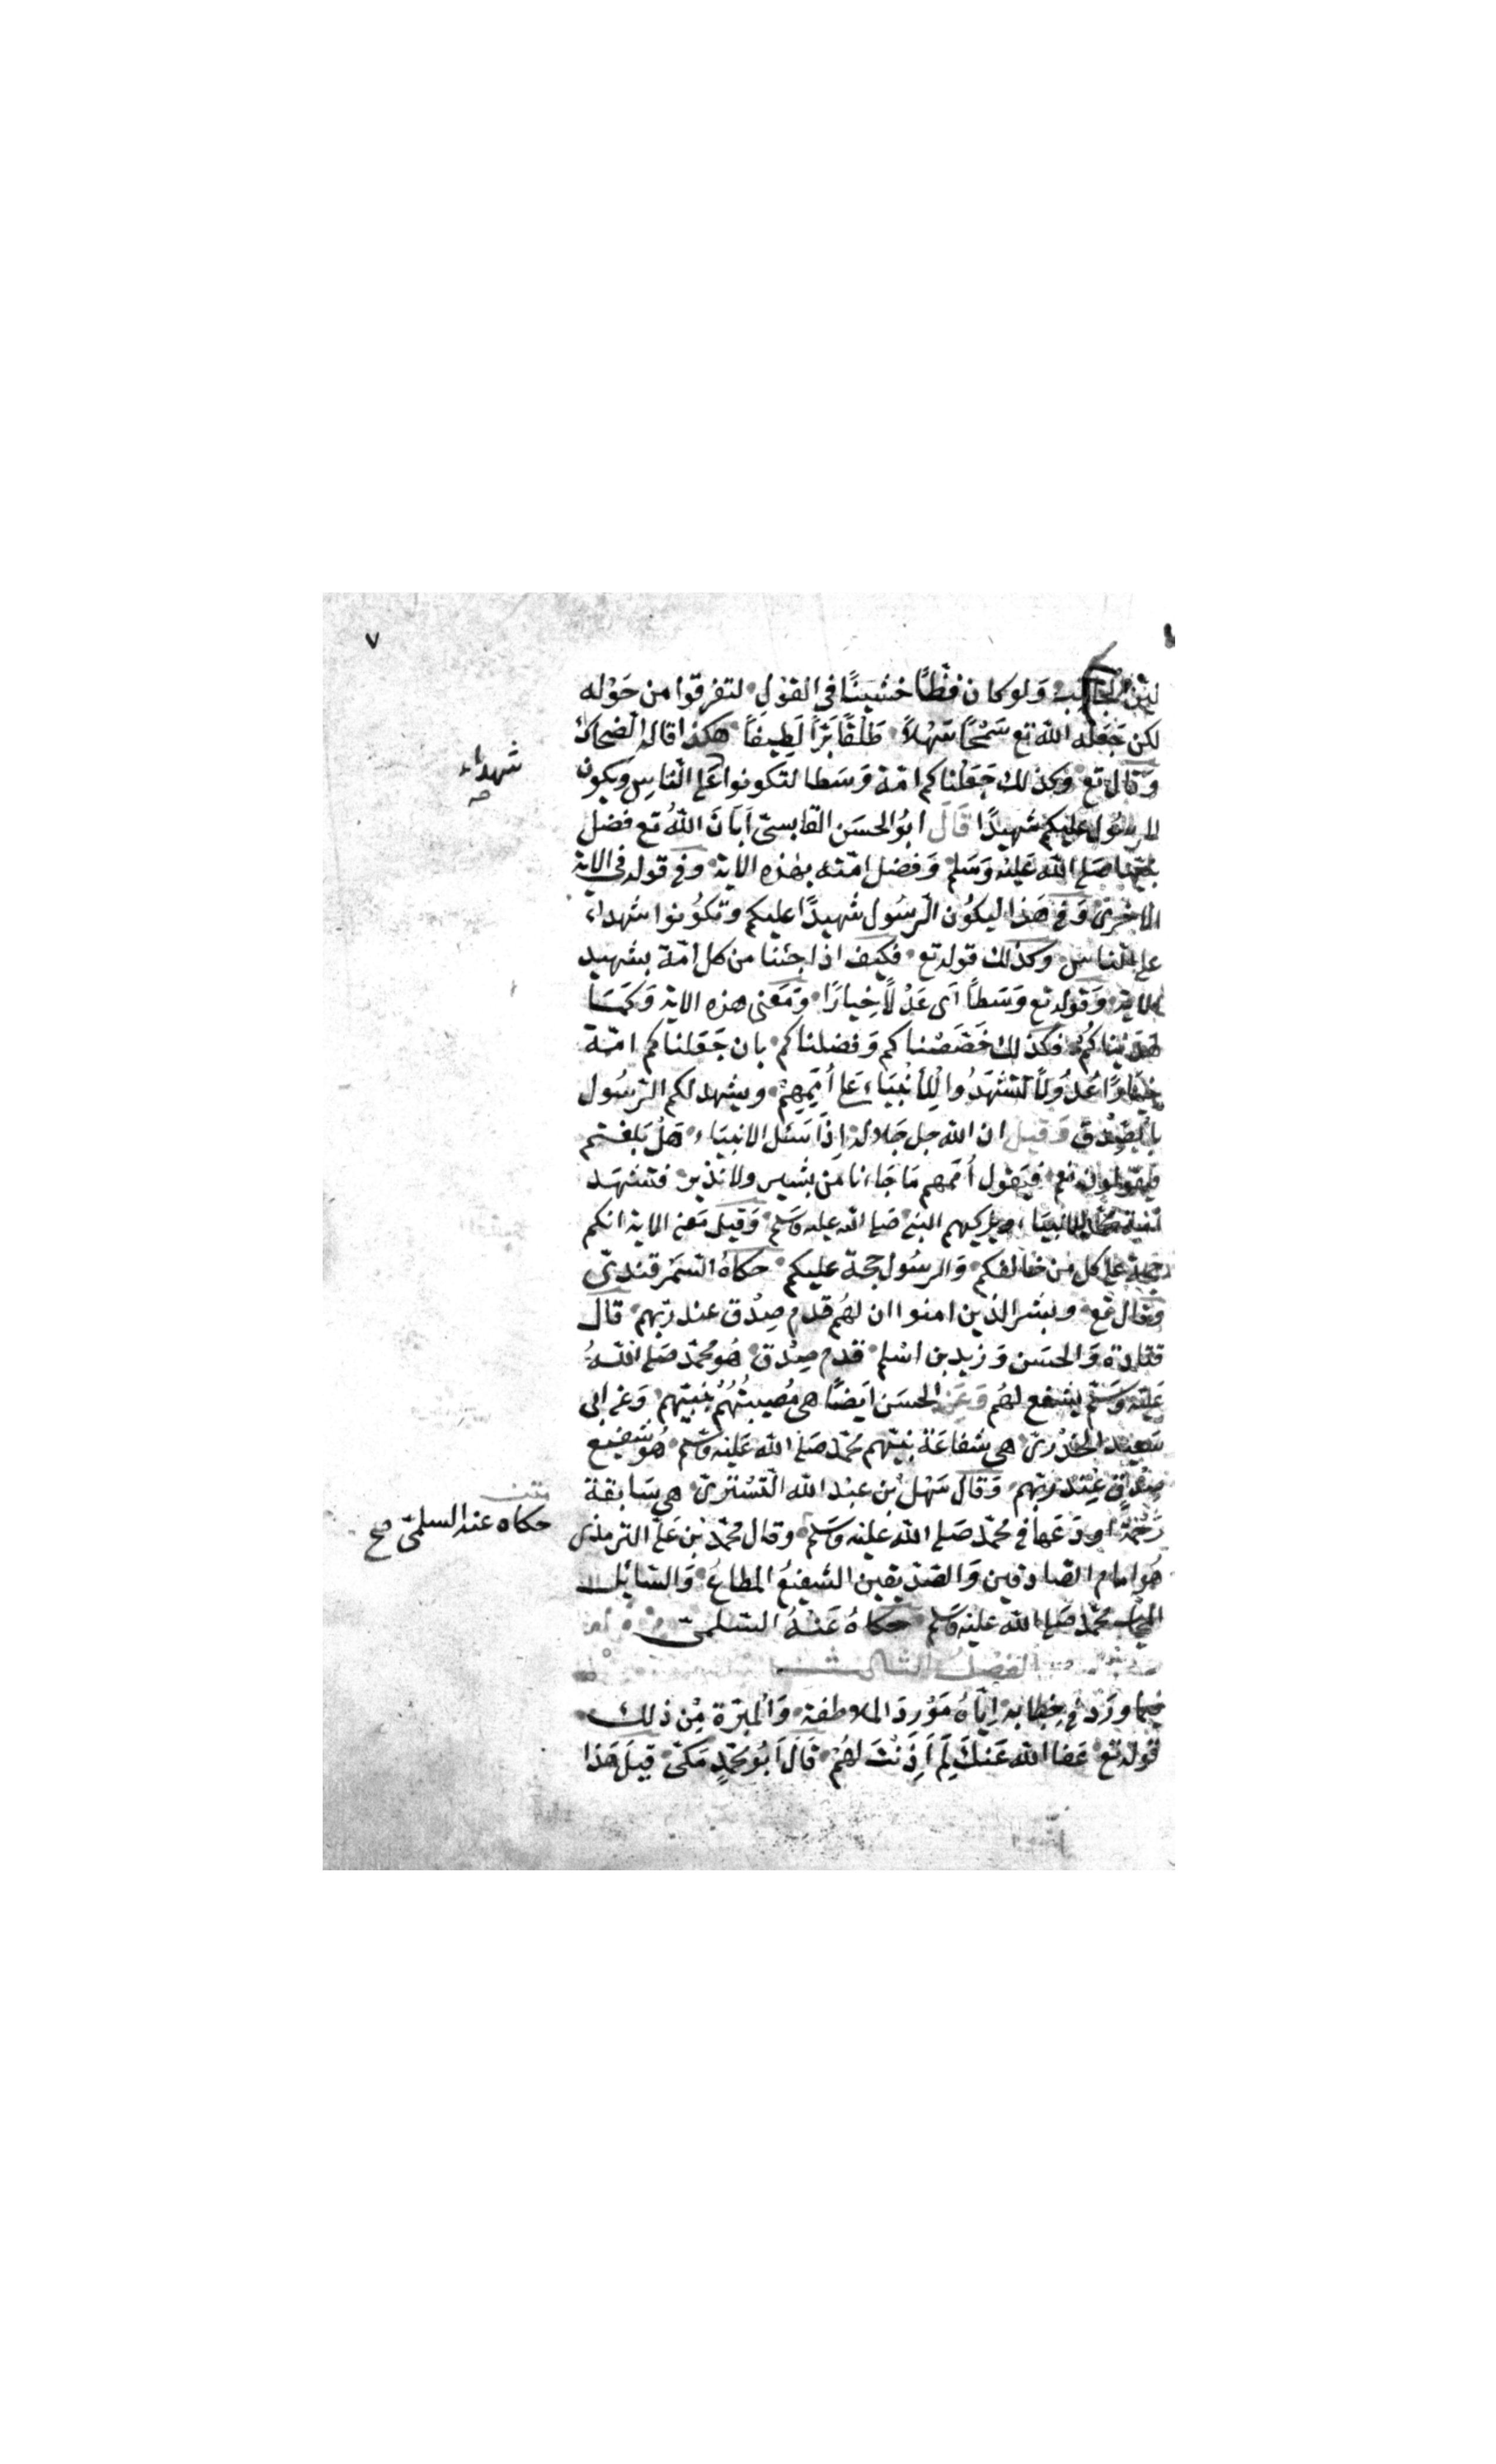 ٧
لين الجانب وَلوكان فظًّا خشينًا في القول لتفرقوا من حَوْله
لكن جَعَله الله تع سَمْحًا سَهْلاً طَلْقًا بَرًّا لَطِيفاً هكذا قاله الضحاك
وَقال تع وكذلك جَعَلْناكم امّة وَسَطا لتكونوا عَلى النّاسِ وَيكون
شهداء
صح
الرسُول عليكم شهيدًا قَالَ ابُو الحسَن القابسىّ اَبَانَ اللهُ تع فضل
صَلى الله عَليْه وَسَلم وَفضل امّته بهٰذه الاية وفي قوله في الاية
الاخرىٰ وَفي هَذا ليكُون الرّسُول شهيدًا عليكم وتكُونوا شهداء
على الناس وكذلك قوله تع فكيف اذا جئنا من كل امّة بشهيد
الاية وَقوله تع وَسَطاً اَى عَدْلاً خِيارًا وَمَعْنى هذه الاية وَكَمَا
هَدَيْناكُم فكذلك خَصَصْناكم وَفضلناكم بان جَعَلناكم امّة
خيارًا عُدُولاً لتَشْهَدُوا لِلأنْبيَاء عَلى أُمَمِهِمْ ويشهد لكم الرّسُول
بالصِّدْقِ وَقيل ان الله جل جَلاله إذَا سَئل الانبيَاء هَلْ بَلغتم
فيقولون نعم فيَقول أممهم مَا جَاءنا مِن بشير ولا نذير فتشهَد
امّة محمّد للانبيَاء ويزكيهم النبيّ صَلى الله عليه وَسَلم وَقيل مَعنى الاية انكم
حجة على كل من خالفكم وَالرسُول حجة عليكم حكاهُ السّمَرقندىّ
وَقال تع وبشر الذين امنوا ان لهُم قدم صِدْق عند ربّهم قال
قتادة وَالحسَن وَزيد بن اسْلم قدم صِدْق هُو محمّد صَلى اللهُ
عَليْه وَسَلّم يشفع لهُم وَعَنِ الحسَن ايَضًا هي مُصيبتُهُمْ بنَبيّهم وَعن ابى
سَعيد الخدْرىّ هي شفاعَة نبيّهم محمّد صَلى الله عَليْه وَسَلم هُو شفيع
صِدْقٍ عِنْد رَبّهم وَقال سَهْل بن عبْد الله التّسْترىّ هي سَابقة
رَحْمَةٍ اودَعَها في محمّد صَلى الله عَليْه وَسَلم وقال محمّد بْن عَلىّ الترمذى
حكاه عنه السلمىّ صح
هُو امام الصّادقين وَالصّدّيقين الشفيعُ المطاعُ وَالسّائل
المجاب محمّد صَلى الله عليْه وَسَلم حكاهُ عَنْهُ السّلمىّ
الفصْلُ الثالث
فيما ورَدَ في خِطابه إيّاهُ مَوْردَ الملاطفة وَالمبرّة مِنْ ذلك
قوله تع عَفا الله عَنكَ لِمَ اَذِنْتَ لهُمْ قَالَ اَبُو محمّدٍ مَكىّ قيلَ هَذا